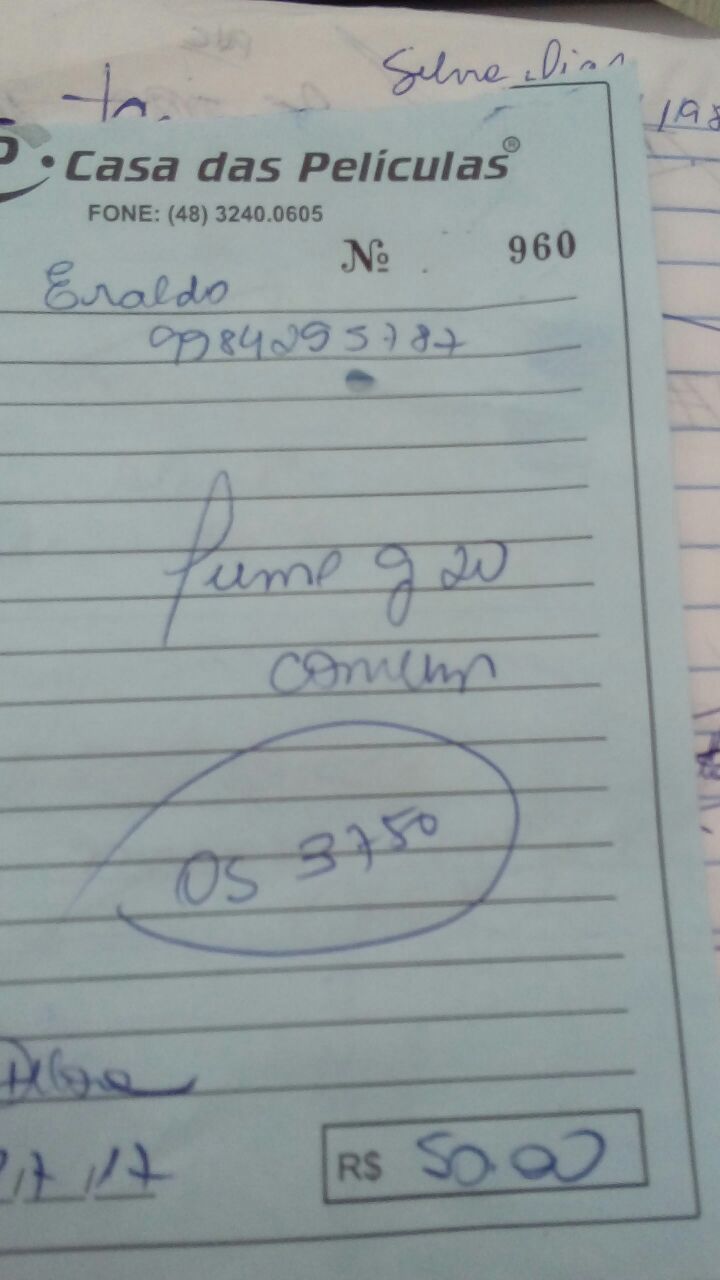 Silva Dias
198
Casa das Películas®
FONE: (48) 3240.0605
Nº 960
Eraldo
9984295787
fume g 20
comum
OS 3750
17
R$ 50.00